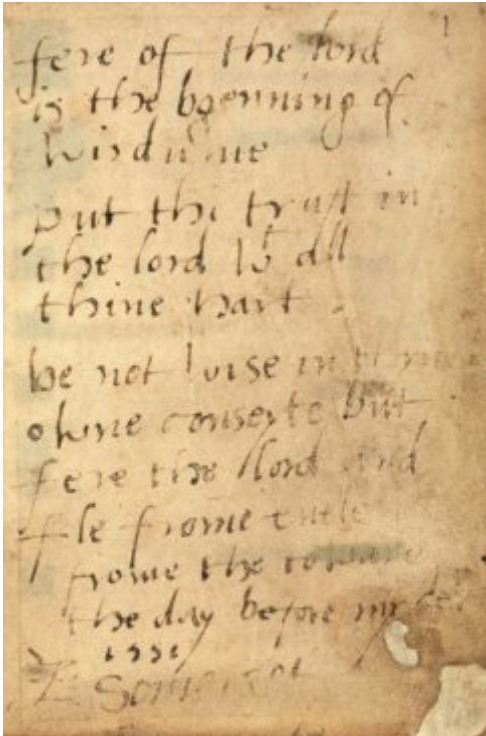 fere of the lord
is the begenning of
wisdume
put thi trust in
the lord wt all
thine hart
be not wise in
ohwne conseyte but
fere the lord and
fle frome
frome the
the day before my
1551
E Somerset